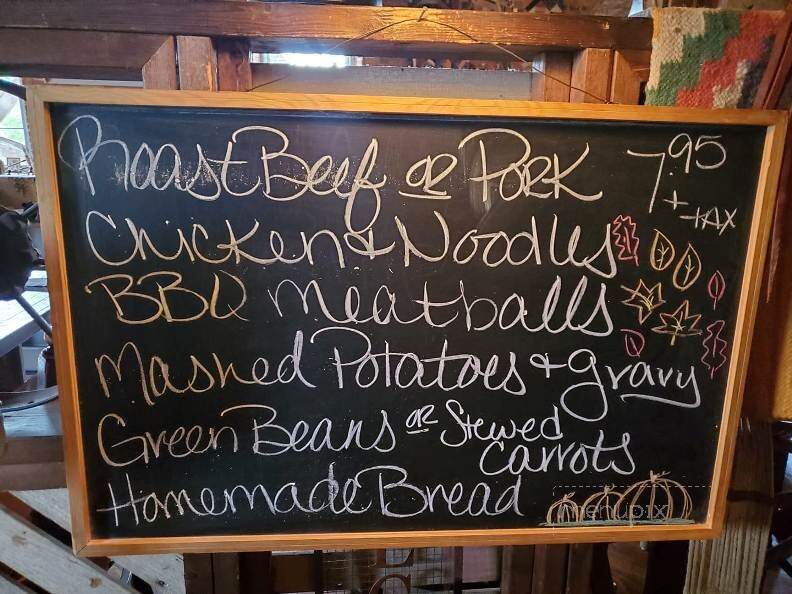 Roast Beef or Pork 7.95
+ tax
Chicken & Noodles
BBQ Meatballs
Mashed Potatoes + gravy
Green Beans or Stewed
Carrots
Homemade Bread
menupix